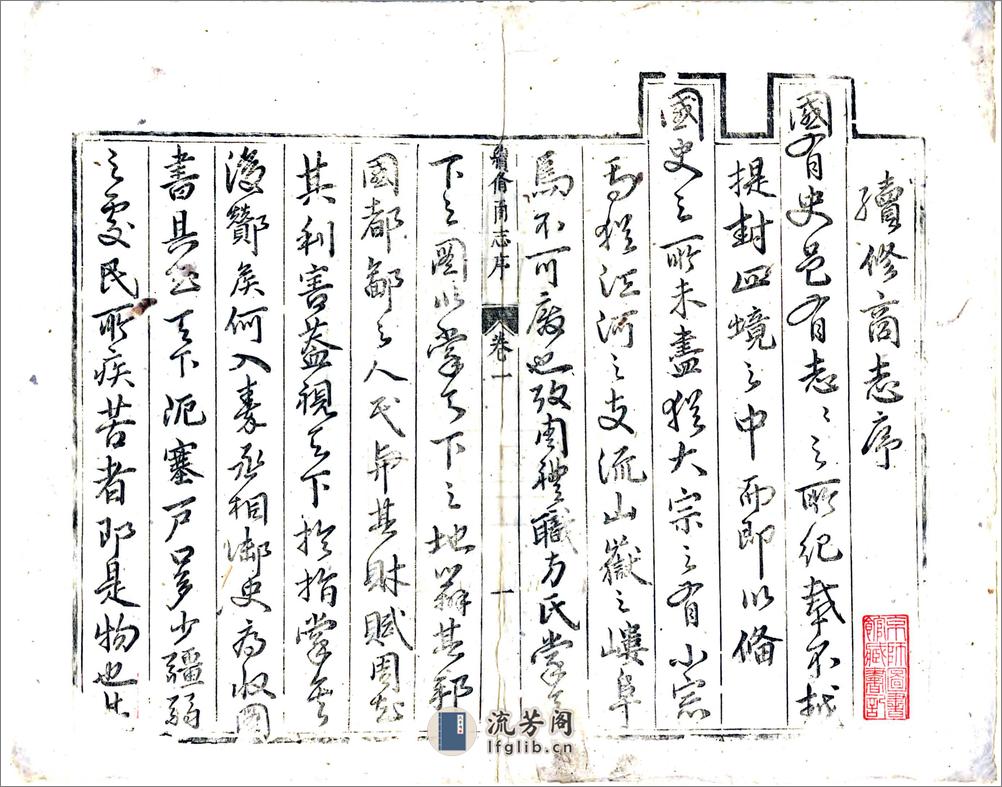 續修商志序
國有史邑有志〻之所紀載不越
提封四境之中而即以備
國史之所未盡猶大宗之有小宗
焉猶江河之支流山嶽之嶁阜
焉不可廢也攷周禮職方氏掌天
續修商志序 卷一 一
下之圖以掌天下之地辨其邦
國都鄙之人民與其財賦周知
其利害蓋視天下於指掌矣
漢酇矦何入秦丞相御史府收圖
書具知天下阨塞戶口多少彊弱
之處民所疾苦者即是物也
京師圖書館藏書記
流芳阁
lfglib.cn